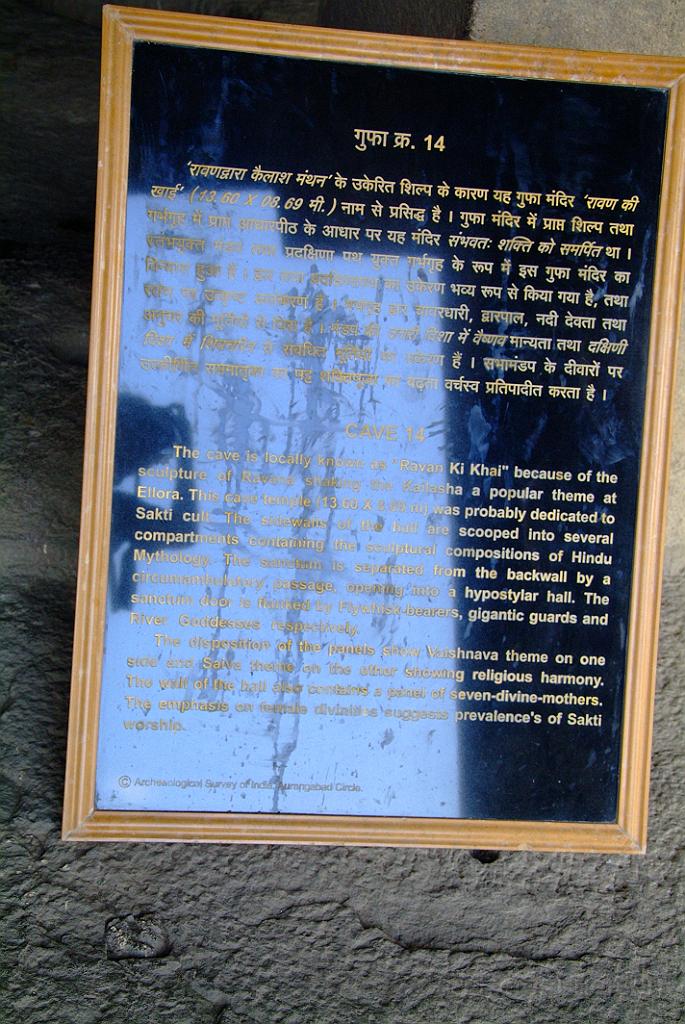 गुफा क्र. 14
'रावणद्वारा कैलाश मंथन' के उकेरित शिल्प के कारण यह गुफा मंदिर 'रावण की
खाई' (13.60 X 08.69 मी.) नाम से प्रसिद्ध है । गुफा मंदिर में प्राप्त शिल्प तथा
गर्भगृह में प्राप्त आधारपीठ के आधार पर यह मंदिर संभवतः शक्ति को समर्पित था ।
स्तंभयुक्त मंडप तथा प्रदक्षिणा पथ युक्त गर्भगृह के रूप में इस गुफा मंदिर का
हुआ है । द्वार तथा का उकेरण भव्य रूप से किया गया है, तथा
पर उत्कृष्ट अलंकरण है । गर्भगृह द्वार चावरधारी, द्वारपाल, नदी देवता तथा
की मूर्तियों से है । मंडप की उत्तरी दिशा में वैष्णव मान्यता तथा दक्षिणी
दिशा में से संबंधित मूर्तियों का उकेरण हैं । सभामंडप के दीवारों पर
उत्कीर्णित सप्तमातृका का पट्ट शक्तिपूजा का बढ़ता वर्चस्व प्रतिपादीत करता है ।
CAVE 14
The cave is locally known as "Ravan Ki Khai" because of the
sculpture of Ravana shaking the Kailasha a popular theme at
Ellora. This cave temple (13.60 X 8.69 m) was probably dedicated to
Sakti cult. The sidewalls of the hall are scooped into several
compartments containing the sculptural compositions of Hindu
Mythology. The sanctum is separated from the backwall by a
circumambulatory passage, opening into a hypostylar hall. The
sanctum door is flanked by Flywhisk-bearers, gigantic guards and
River Goddesses respectively.
The disposition of the panels show Vaishnava theme on one
side and Saiva theme on the other showing religious harmony.
The wall of the hall also contains a panel of seven-divine-mothers.
The emphasis on female divinities suggests prevalence's of Sakti
worship.
© Archaeological Survey of India, Aurangabad Circle.